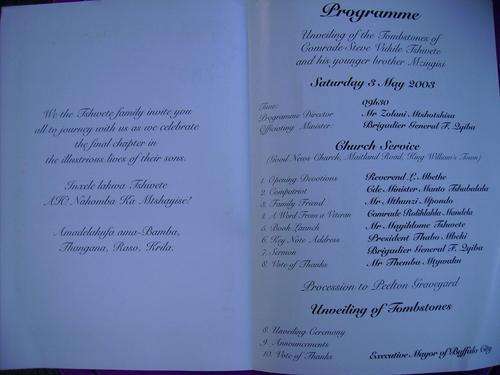 We the Tshwete family invite you
all to journey with us as we celebrate
the final chapter in
the illustrious lives of their sons.
Inxele lakwa Tshwete
AH! Nakomba Ka Mtshayise!
Amadelakufa ama-Bamba,
Thangana, Raso, Krila.
Programme
Unveiling of the Tombstones of
Comrade Steve Vukile Tshwete
and his younger brother Mzayisi
Saturday 3 May 2003
Time: 09h30
Programme Director Mr Zolani Mtshotshisa
Officiating Minister Brigadier General F. Qqiba
Church Service
(Good News Church, Maitland Road, King William's Town)
1. Opening Devotions Reverend L. Mbethe
2. Compatriot Cde Minister Manto Tshabalala
3. Family Friend Mr Mthunzi Mpondo
4. A Word From a Veteran Comrade Rolihlahla Mandela
5. Book Launch Mr Mayihlome Tshwete
6. Key Note Address President Thabo Mbeki
7. Sermon Brigadier General F. Qqiba
8. Vote of Thanks Mr Themba
Procession to Peelton Graveyard
Unveiling of Tombstones
8. Unveiling Ceremony
9. Announcements
10. Vote of Thanks Executive Mayor of Buffalo City